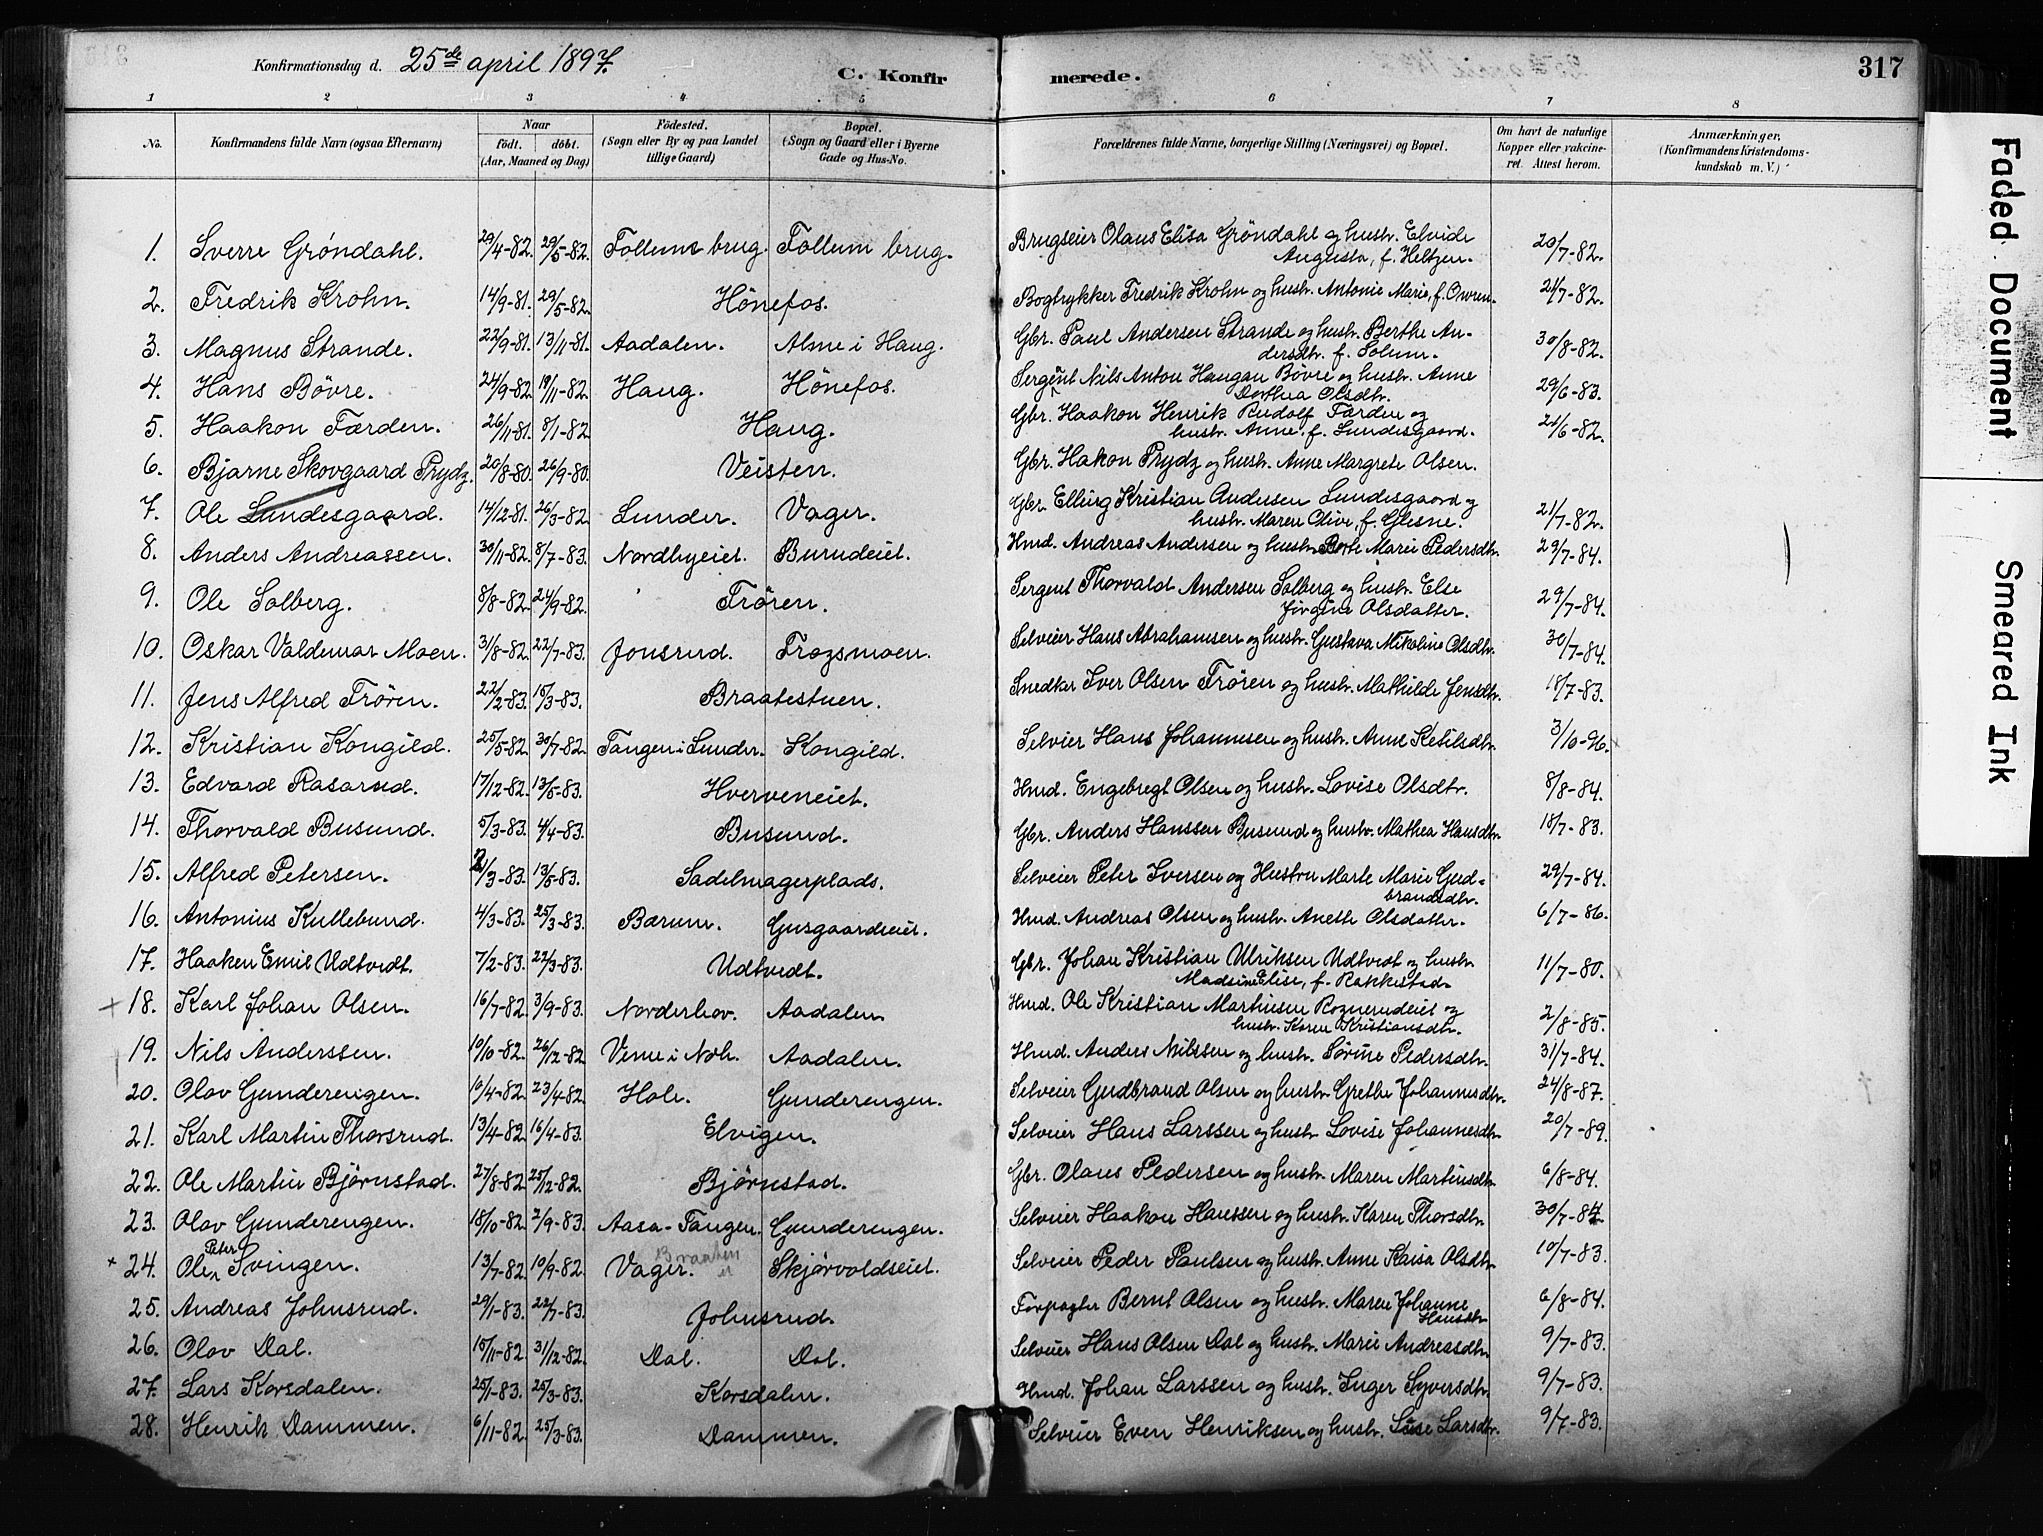 Konfirmationsdag d. 25de april 1897.
C. Konfir merede.
317
1 2 3 4 5 6 7 8
No.
Konfirmandens fulde Navn (ogsaa Efternavn)
Naar
födt. döbt.
(Aar, Maaned og Dag)
Födested.
(Sogn eller By og paa Landet
tillige Gaard)
Bopæl.
(Sogn og Gaard eller i Byerne
Gade og Hus-No.
Forældrenes fulde Navne, borgerlige Stilling (Næringsvei) og Bopæl.
Om havt de naturlige
Kopper eller vakcine-
ret. Attest herom.
Anmærkninger.
(Konfirmandens Kristendoms-
kundskab m. V.)
1. Sverre Gröndahl. 29/4-82. 29/5-82. Follum brug. Follum brug. Brugseier Olaus Elisa Gröndahl og hustr. Elvide
Augusta, f. Heltzen. 20/7-82.
2. Fredrik Krohn. 14/9-81. 29/5-82. Hönefos. Bogtrykker Fredrik Krohn og hustr. Antonie Marie, f. Owren. 24/7-82.
3. Magnus Strande. 22/9-81. 13/11-81. Aadalen. Alme i Haug. Gbr. Paul Andersen Strande og hustr. Berthe An-
dersdtr. f. Solum. 30/8-82.
4. Hans Bövre. 24/9-82. 19/11-82. Haug. Hönefos. Sergent Nils Anton Haugan Bövre og hustr. Anne
Dorthea Olsdtr. 29/6-83.
5. Haakon Færden. 26/11-81. 8/1-82. Haug. Gbr. Haakon Henrik Rudolf Færden og
hustr. Anne f. Lundesgaard. 21/6-82.
6. Bjarne Skovgaard Prydz. 20/8-80. 26/9-80. Veisten. Gbr. Hakon Prydz og hustr. Anne Margrete Olsen.
7. Ole Lundesgaard. 14/12-81. 26/3-82. Lunder. Vager. Gbr. Elling Kristian Andersen Lundesgaard og
hustr. Maren Olive, f. Glesne. 21/7-82.
8. Anders Andreassen. 30/11-82. 8/7-83. Nordbyeiet. Burudeiet. Hmd. Andreas Andersen og hustr. Berte Marie Pedersdtr. 29/7-84.
9. Ole Solberg. 8/8-82. 24/9-82. Trören. Sergent Thorvald Andersen Solberg og hustr. Else
Jörgine Olsdatter. 29/7-84.
10. Oskar Valdemar Moen. 31/8-82. 22/7-83. Jonsrud. Fragsmoen. Selveier Hans Abrahamsen og hustr. Gustava Nikoline Olsdtr. 30/7-84.
11. Jens Alfred Trören. 22/2-83. 15/3-83. Braatestuen. Snedker Iver Olsen Trören og hustr. Mathilde Jensdtr. 18/7-83.
12. Kristian Kongild. 25/5-82. 30/7-82. Tangen i Lunder. Kongild. Selveier Hans Johannesen og hustr. Anne Ketilsdtr. 3/10-96.
13. Edvard Rasarud. 17/12-82. 13/5-83. Hverveneiet. Hmd. Engebregt Olsen og hustr. Lovise Olsdtr. 8/8-84.
14. Thorvald Busund. 5/3-83. 4/4-83. Busund. Gbr. Anders Hanssen Busund og hustr. Mathea Hansdtr. 18/7-83.
15. Alfred Petersen. 2/3-83. 13/5-83. Sadelmagerplads. Selveier Peter Iversen og Hustru Marte Marie Gud-
brandsdtr. 29/7-84.
16. Antonius Kullebund. 4/3-83. 25/3-83. Bærum. Gusgaardseiet. Hmd. Andreas Olsen og hustr. Anethe Olsdatter. 6/7-86.
17. Haaken Emil Udtvedt. 7/2-83. 22/3-83. Udtvedt. Gbr. Johan Kristian Ulriksen Udtvedt og hustr.
Madsine Elise, f. Rakkestad. 11/7-80.
+ 18. Karl Johan Olsen. 16/7-82. 3/9-83. Norderhov. Aadalen Hmd. Ole Kristian Martinsen Rognerudeiet og
hustr. Karen Kristiansdtr. 2/8-85.
19. Nils Anderssen. 10/10-82. 26/12-82. Veme i Noh. Aadalen. Hmd. Anders Nilssen og hustr. Sörine Pedersdtr. 31/7-84.
20. Olav Gunderengen. 10/4-82. 23/4-82. Hole. Gunderengen. Selveier Gudbrand Olsen og hustr. Grethe Johannesdtr. 24/8-87.
21. Karl Martin Thorsrud. 13/4-82. 16/4-83. Elvigen. Selveier Hans Larssen og hustr. Lovise Johannesdtr. 20/7-89.
22. Ole Martin Björnstad. 27/8-82. 25/12-82. Björnstad. Gbr. Olaus Pedersen og hustr. Maren Martinsdtr. 6/8-84.
23. Olav Gunderengen. 18/10-82. 2/9-83. Aasa-Tangen. Gunderengen. Selveier Haakon Hanssen og hustr. Karen Thorsdtr. 30/7-84
+ 24. Ole Peter Svingen. 13/7-82. 10/9-82. Vager. Braaten Skjörvoldseiet. Selveier Peder Paulsen og hustr. Anne Kaisa Olsdtr. 10/7-83.
25. Andreas Johnsrud. 29/1-83. 22/7-83. Johnsrud. Forpagter Bernt Olsen og hustr. Maren Johanne
Hansdtr. 6/8-84.
26. Olav Dal. 15/11-82. 31/12-82. Dal. Dal. Selveier Hans Olsen Dal og hustr. Marie Andreasdtr. 9/7-83.
27. Lars Korsdalen. 25/1-83. 25/3-83. Korsdalen. Hmd. Johan Larssen og hustr. Inger Syversdtr. 9/7-83.
28. Henrik Dammen. 6/11-82. 25/3-83. Dammen. Selveier Even Henriksen og hustr. Lise Larsdtr. 9/7-83.
Faded Document
Smeared Ink